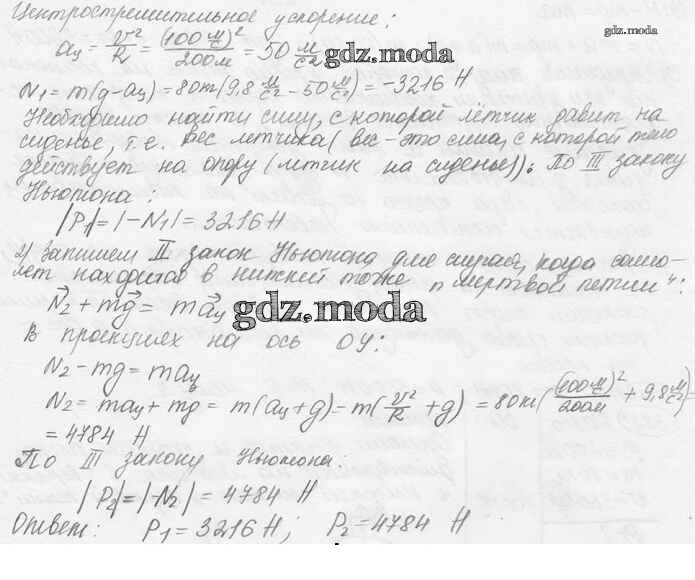 Центростремительное ускорение:
aц = v²/R = (100 м/с)²/200м = 50 м/с²
gdz.moda
N₁ = m(g-aц) = 80кг(9,8 м/с² - 50 м/с²) = -3216 Н
Необходимо найти силу, с которой лётчик давит на
сиденье, т.е. вес летчика (вес - это сила, с которой тело
действует на опору (летчик на сиденье)). По III закону
Ньютона:
|P₁| = |-N₁| = 3216 Н
2) Запишем II закон Ньютона для случая, когда само-
лет находится в нижней точке "мертвой петли":
N⃗₂ + mg⃗ = ma⃗ц
gdz.moda
В проекциях на ось OY:
N₂ - mg = maц
N₂ = maц + mg = m(aц+g) = m(v²/R + g) = 80кг((100 м/с)²/200м + 9,8 м/с²) =
= 4784 Н
По III закону Ньютона:
|P₂| = |-N₂| = 4784 Н
Ответ: P₁ = 3216 Н; P₂ = 4784 Н